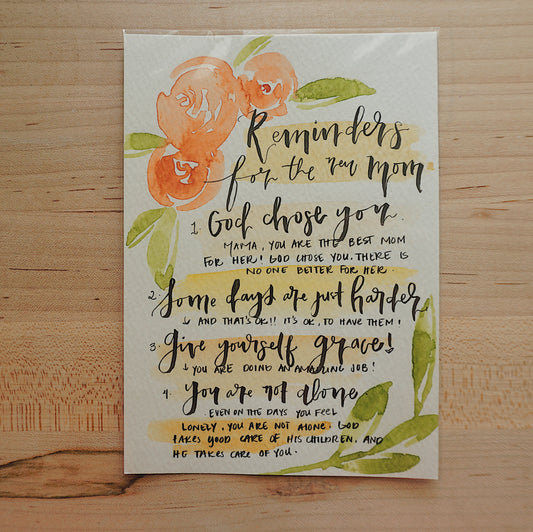 Reminders
for the new mom
1. God chose you.
MAMA, YOU ARE THE BEST MOM
FOR HER! GOD CHOSE YOU. THERE IS
NO ONE BETTER FOR HER.
2. Some days are just harder
↓ AND THAT'S OK!! IT'S OK, TO HAVE THEM!
3. Give yourself grace!
↓ YOU ARE DOING AN AMAZING JOB!
4. You are not alone
EVEN ON THE DAYS YOU FEEL
LONELY, YOU ARE NOT ALONE. GOD
TAKES GOOD CARE OF HIS CHILDREN, AND
HE TAKES CARE OF YOU.